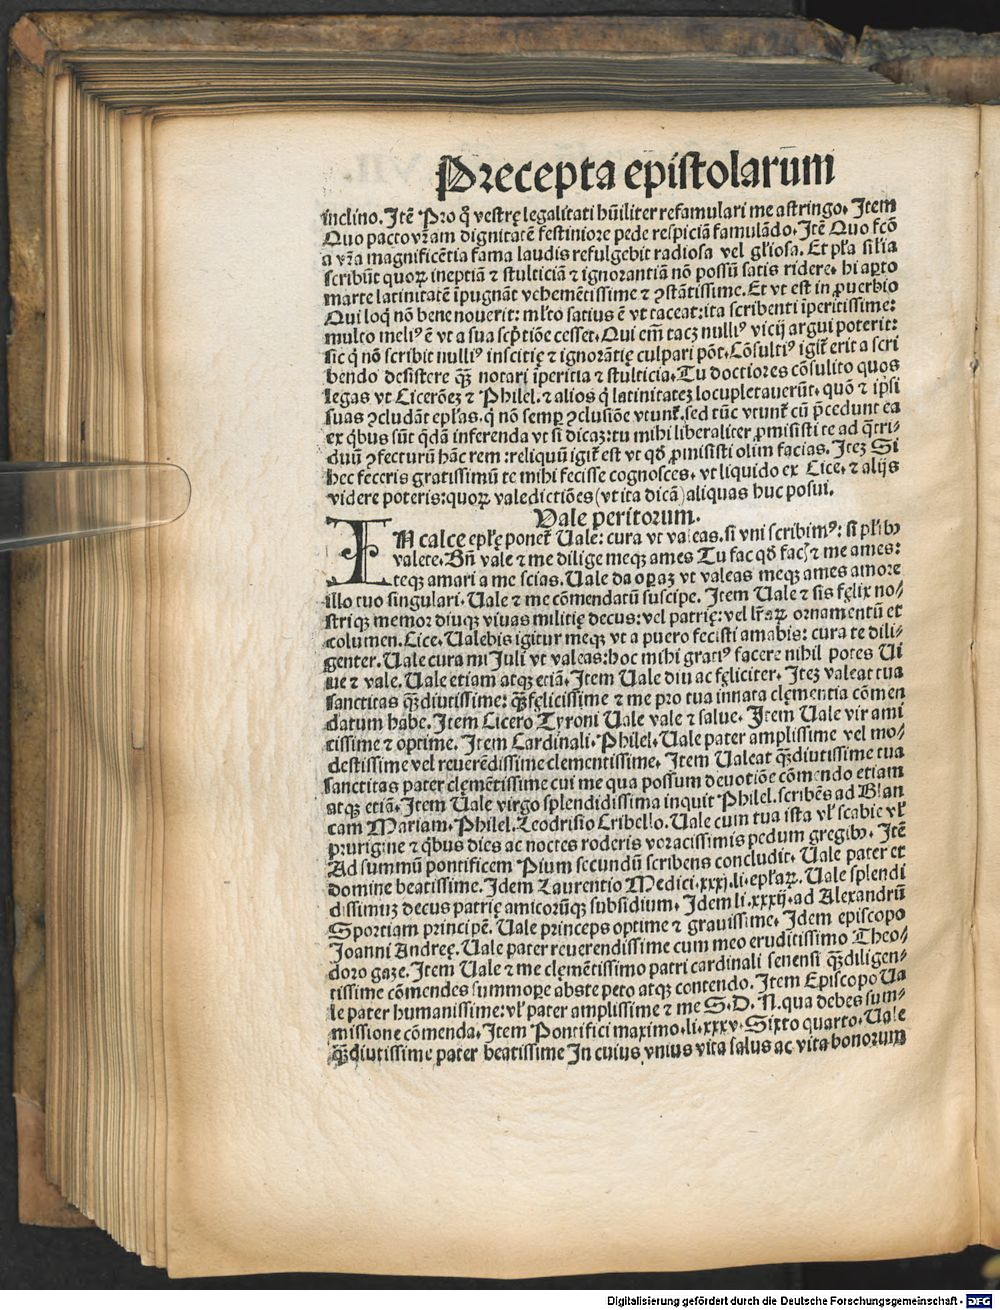 Precepta epistolarum
inclino. Itẽ Pro q̃ vestrę legalitati hũiliter refamulari me astringo. Item
Quo pacto vr̃am dignitatẽ festiniore pede respiciã famulãdo. Itẽ Quo fcõ
a vr̃a magnificẽtia fama laudis refulgebit radiosa vel gl̃iosa. Et pl̃a sil̃ia
scribũt quoꝝ ineptiã ⁊ stulticiã ⁊ ignorantiã nõ possũ satis ridere. hi aꝑto
marte latinitatẽ ĩpugnãt vehemẽtissime ⁊ ꝯstãtissime. Et vt est in ꝓuerbio
Qui loq̃ nõ bene nouerit: ml̃to satius ẽ vt taceat: ita scribenti ĩperitissime:
multo meliꝰ ẽ vt a sua scp̃tiõe cesset. Qui em̃ tacꝫ nulliꝰ vicij argui poterit:
sic q̃ nõ scribit nulliꝰ inscitię ⁊ ignorãtię culpari põt. Cõsultiꝰ igit̃ erit a scri
bendo desistere qꝫ̃ notari ĩperitia ⁊ stulticia. Tu doctiores cõsulito quos
legas vt Cicerõeꝫ ⁊ Philel. ⁊ alios q̃ latinitateꝫ locupletauerũt. quõ ⁊ ip̃si
suas ꝯcludãt epl̃as. q̃ nõ semꝑ ꝯclusiõe vtunt̃. sed tũc vtunt̃ cũ p̃cedunt ea
ex q̃bus sũt q̃dã inferenda vt si dicaꝫ: tu mihi liberaliter ꝓmisisti te ad q̃tri-
duũ ꝯfecturũ hãc rem: reliquũ igit̃ est vt qð ꝓmisisti olim facias. Iteꝫ Si
hec feceris gratissimũ te mihi fecisse cognosces. vt liquido ex Cice. ⁊ alijs
videre poteris: quoꝝ valedictiões (vt ita dicã) aliquas huc posui.
Vale peritorum.
IN calce epl̃ę ponet̃ Uale: cura vt valeas. si vni scribimꝰ: si pl̃ibꝫ
valete. Bñ vale ⁊ me dilige meqꝫ ames Tu fac qð facꝭ ⁊ me ames:
teqꝫ amari a me scias. Uale da oꝑaꝫ vt valeas meqꝫ ames amore
illo tuo singulari. Uale ⁊ me cõmendatũ suscipe. Item Uale ⁊ sis fęlix no/
striqꝫ memor diuqꝫ viuas militię decus: vel patrię: vel lr̃aꝝ ornamentũ et
columen. Cice. Ualebis igitur meqꝫ vt a puero fecisti amabis: cura te dili/
genter. Uale cura mi Juli vt valeas: hoc mihi gratiꝰ facere nihil potes Ui
ue ⁊ vale. Uale etiam atqꝫ etiã. Item Uale diu ac fęliciter. Iteꝫ valeat tua
sanctitas qꝫ̃diutissime: qꝫ̃fęlicissime ⁊ me pro tua innata clęmentia cõmen
datum habe. Item Cicero Tyroni Uale vale ⁊ salue. Item Uale vir ami
cissime ⁊ optime. Item Cardinali. Philel. Uale pater amplissime vel mo/
destissime vel reuerẽdissime clementissime. Item Ualeat qꝫ̃diutissime tua
sanctitas pater clęmẽtissime cui me qua possum deuotiõe cõmendo etiam
atqꝫ etiã. Item Uale virgo splendidissima inquit Philel. scribẽs ad Blan
cam Mariam. Philel. Leodrisio Cribello. Uale cum tua ista vl̃ scabie vl̃
prurigine ⁊ q̃bus dies ac noctes roderis voracissimis pedum gregibꝫ. Itẽ
Ad summũ pontificem Pium secundũ scribens concludit. Uale pater et
domine beatissime. Idem Laurentio Medici. xxxj. li. epl̃aꝝ. Uale splendi
dissimuꝫ decus patrię amicorũqꝫ subsidium. Idem li. xxxij. ad Alexandrũ
Sportiam principẽ. Uale princeps optime ⁊ grauissime. Idem episcopo
Joanni Andreę. Uale pater reuerendissime cum meo eruditissimo Theo/
doro gaze. Item Uale ⁊ me clęmẽtissimo patri cardinali senensi qꝫ̃diligen/
tissime cõmendes summoꝑe abste peto atqꝫ contendo. Item Episcopo Ua
le pater humanissime: vl̃ pater amplissime ⁊ me S. D. N. qua debes sum/
missione cõmenda. Item Pontifici maximo. li. xxxv. Sixto quarto. Uale
qꝫ̃diutissime pater beatissime In cuius vnius vita salus ac vita bonorum
Digitalisierung gefördert durch die Deutsche Forschungsgemeinschaft - DFG